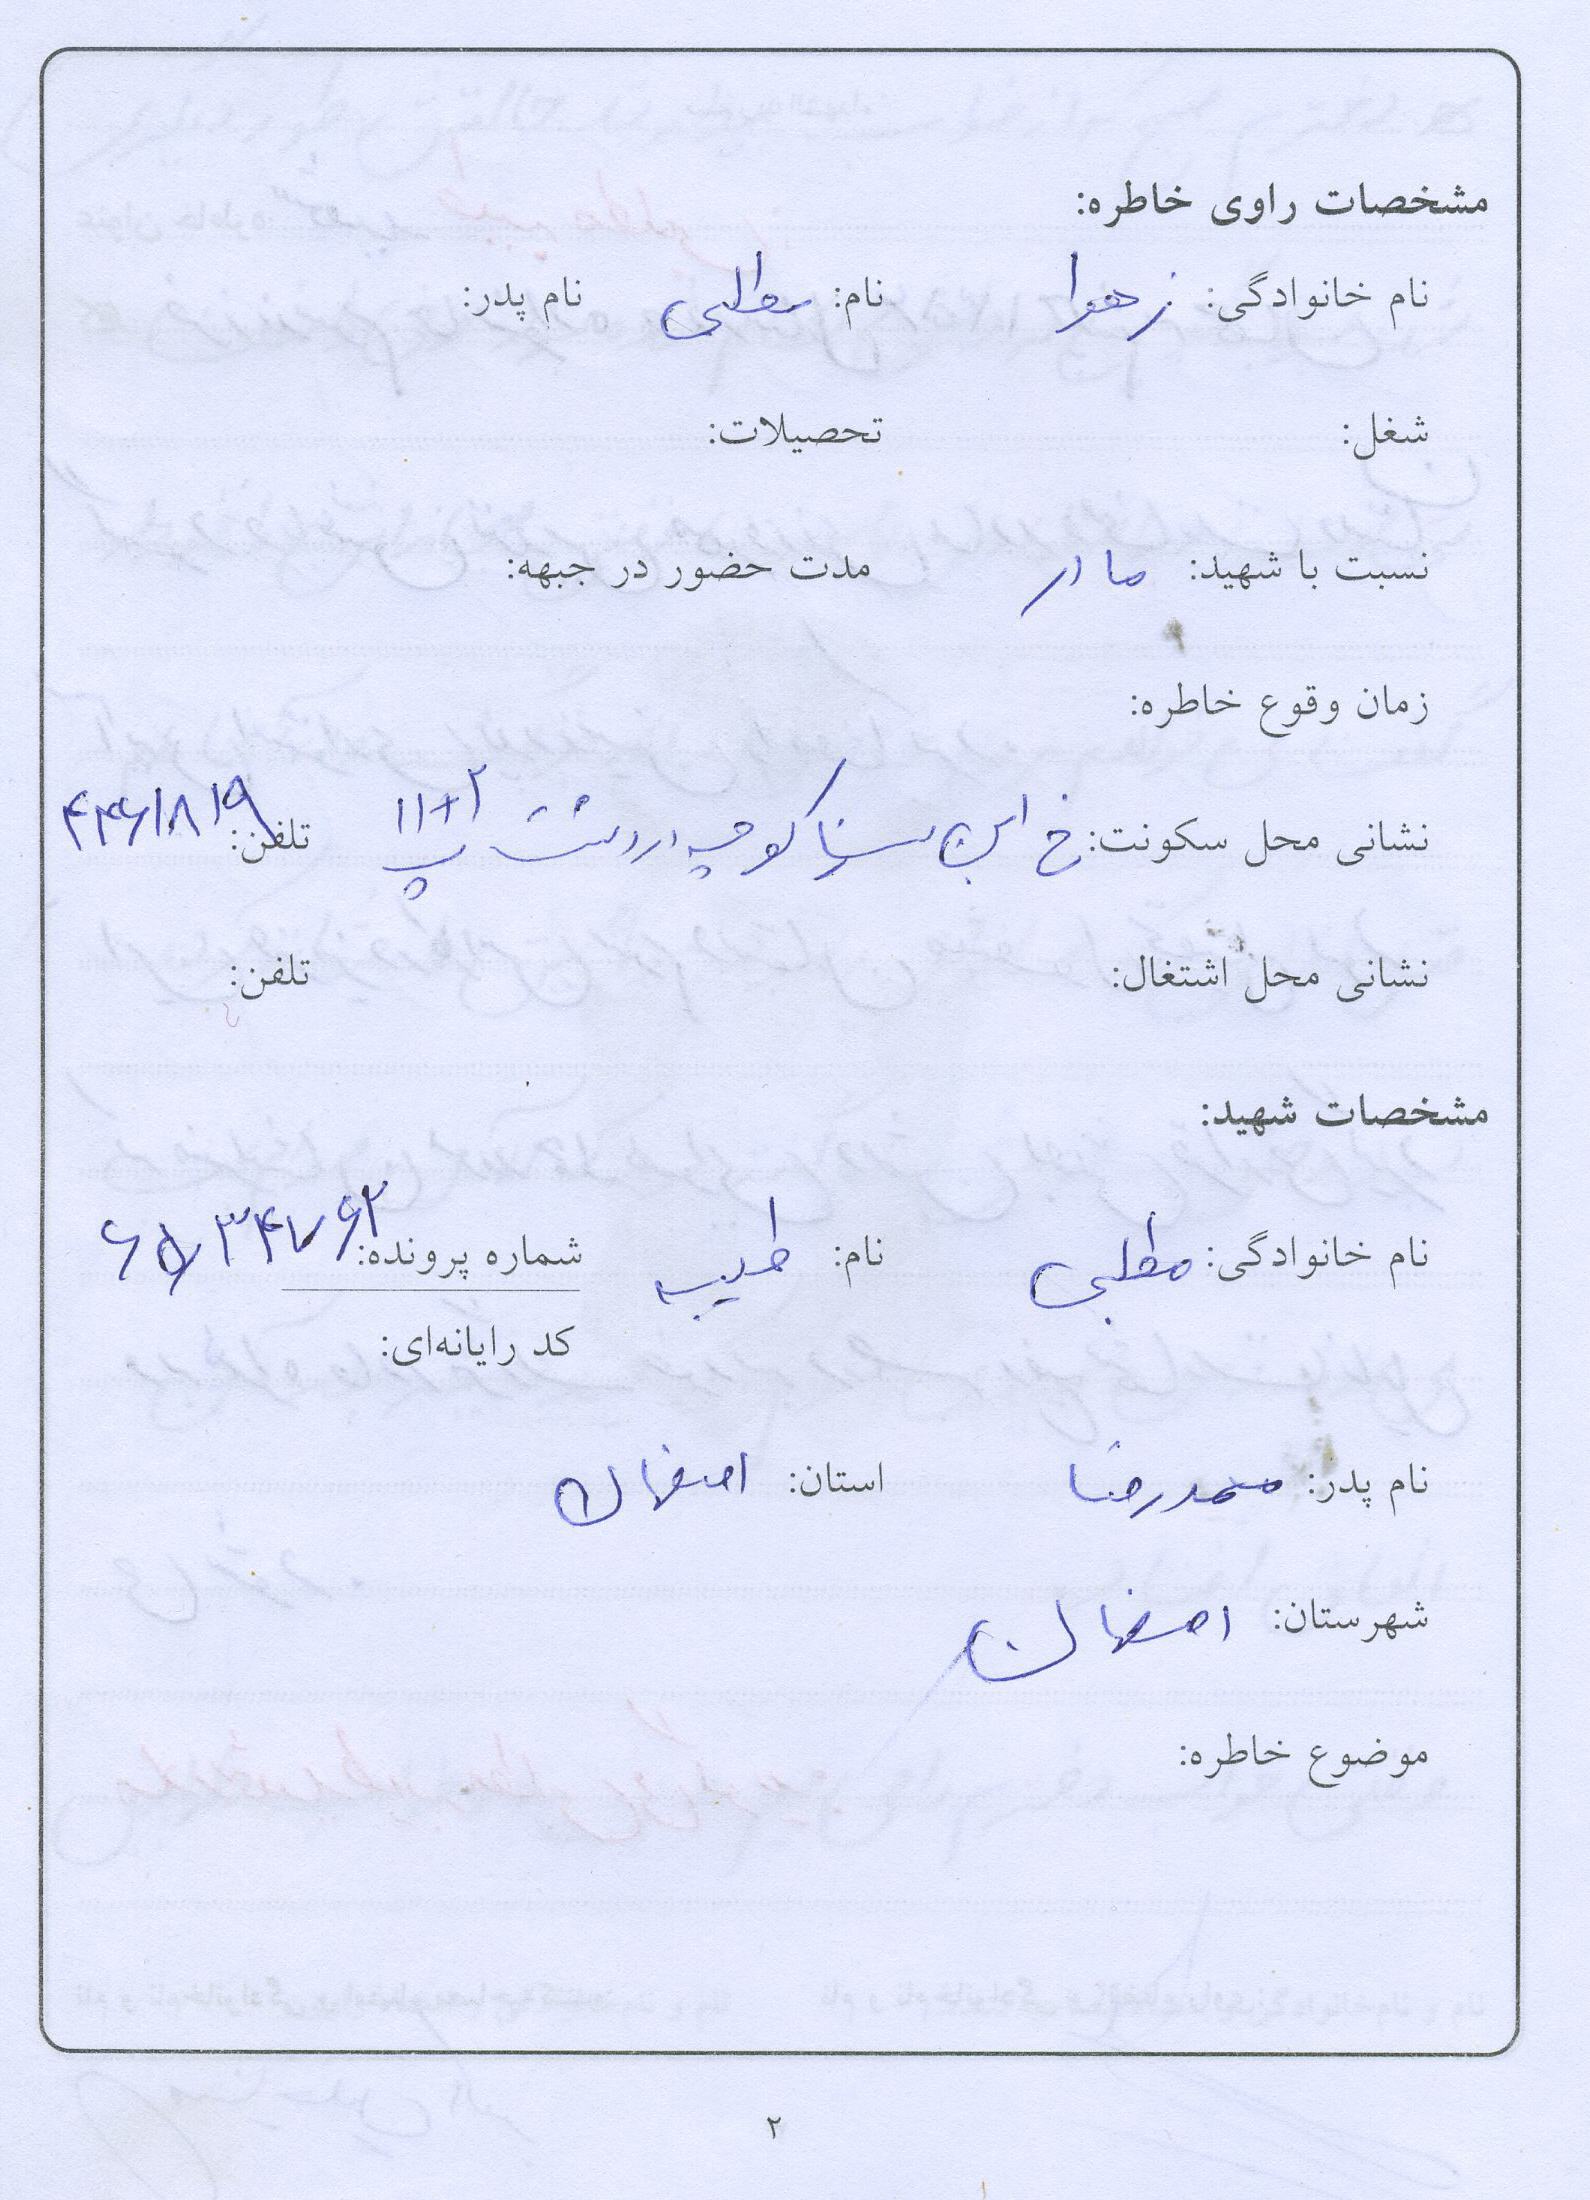 مشخصات راوی خاطره:
نام خانوادگی: زهرا نام: مطلبی نام پدر:
شغل: تحصیلات:
نسبت با شهید: مادر مدت حضور در جبهه:
زمان وقوع خاطره:
نشانی محل سکونت: خ ابن سینا کوچه دردشت پ ۱۱+۲ تلفن: ۴۴۶۱۸۱۹
نشانی محل اشتغال: تلفن:
مشخصات شهید:
نام خانوادگی: مطلبی نام: طیبه شماره پرونده: ۶۵۳۴۷۶۲
کد رایانه‌ای:
نام پدر: محمدرضا استان: اصفهان
شهرستان: اصفهان
موضوع خاطره:
۲